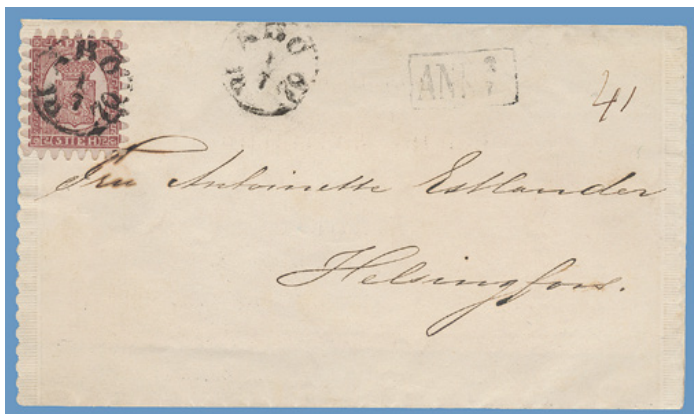 ÅBO
1
7
ÅBO
1
7
ANK
41
5 ПЕН.
Fru Antoinette Estlander
Helsingfors.